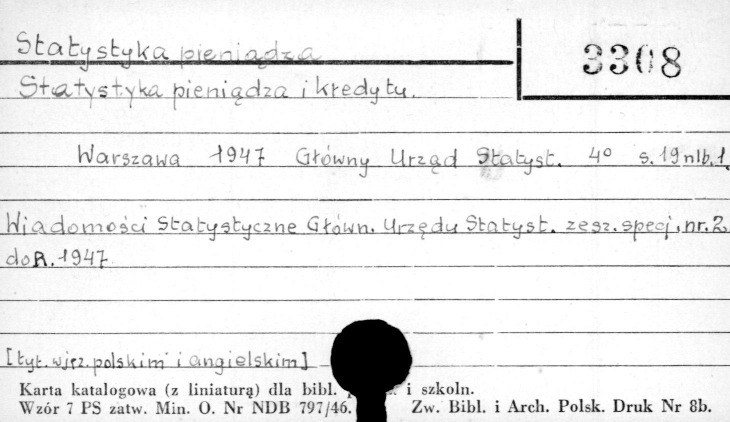 Statystyka pieniądza
3308
Statystyka pieniądza i kredytu.
Warszawa 1947 Główny Urząd Statyst. 4° s. 19 nlb. 1.
Wiadomości Statystyczne Główn. Urzędu Statyst. zesz. specj. nr. 2
do R. 1947
[tyt. w jęz. polskim i angielskim]
Karta katalogowa (z liniaturą) dla bibl. i szkoln.
Wzór 7 PS zatw. Min. O. Nr NDB 797/46. Zw. Bibl. i Arch. Polsk. Druk Nr 8b.